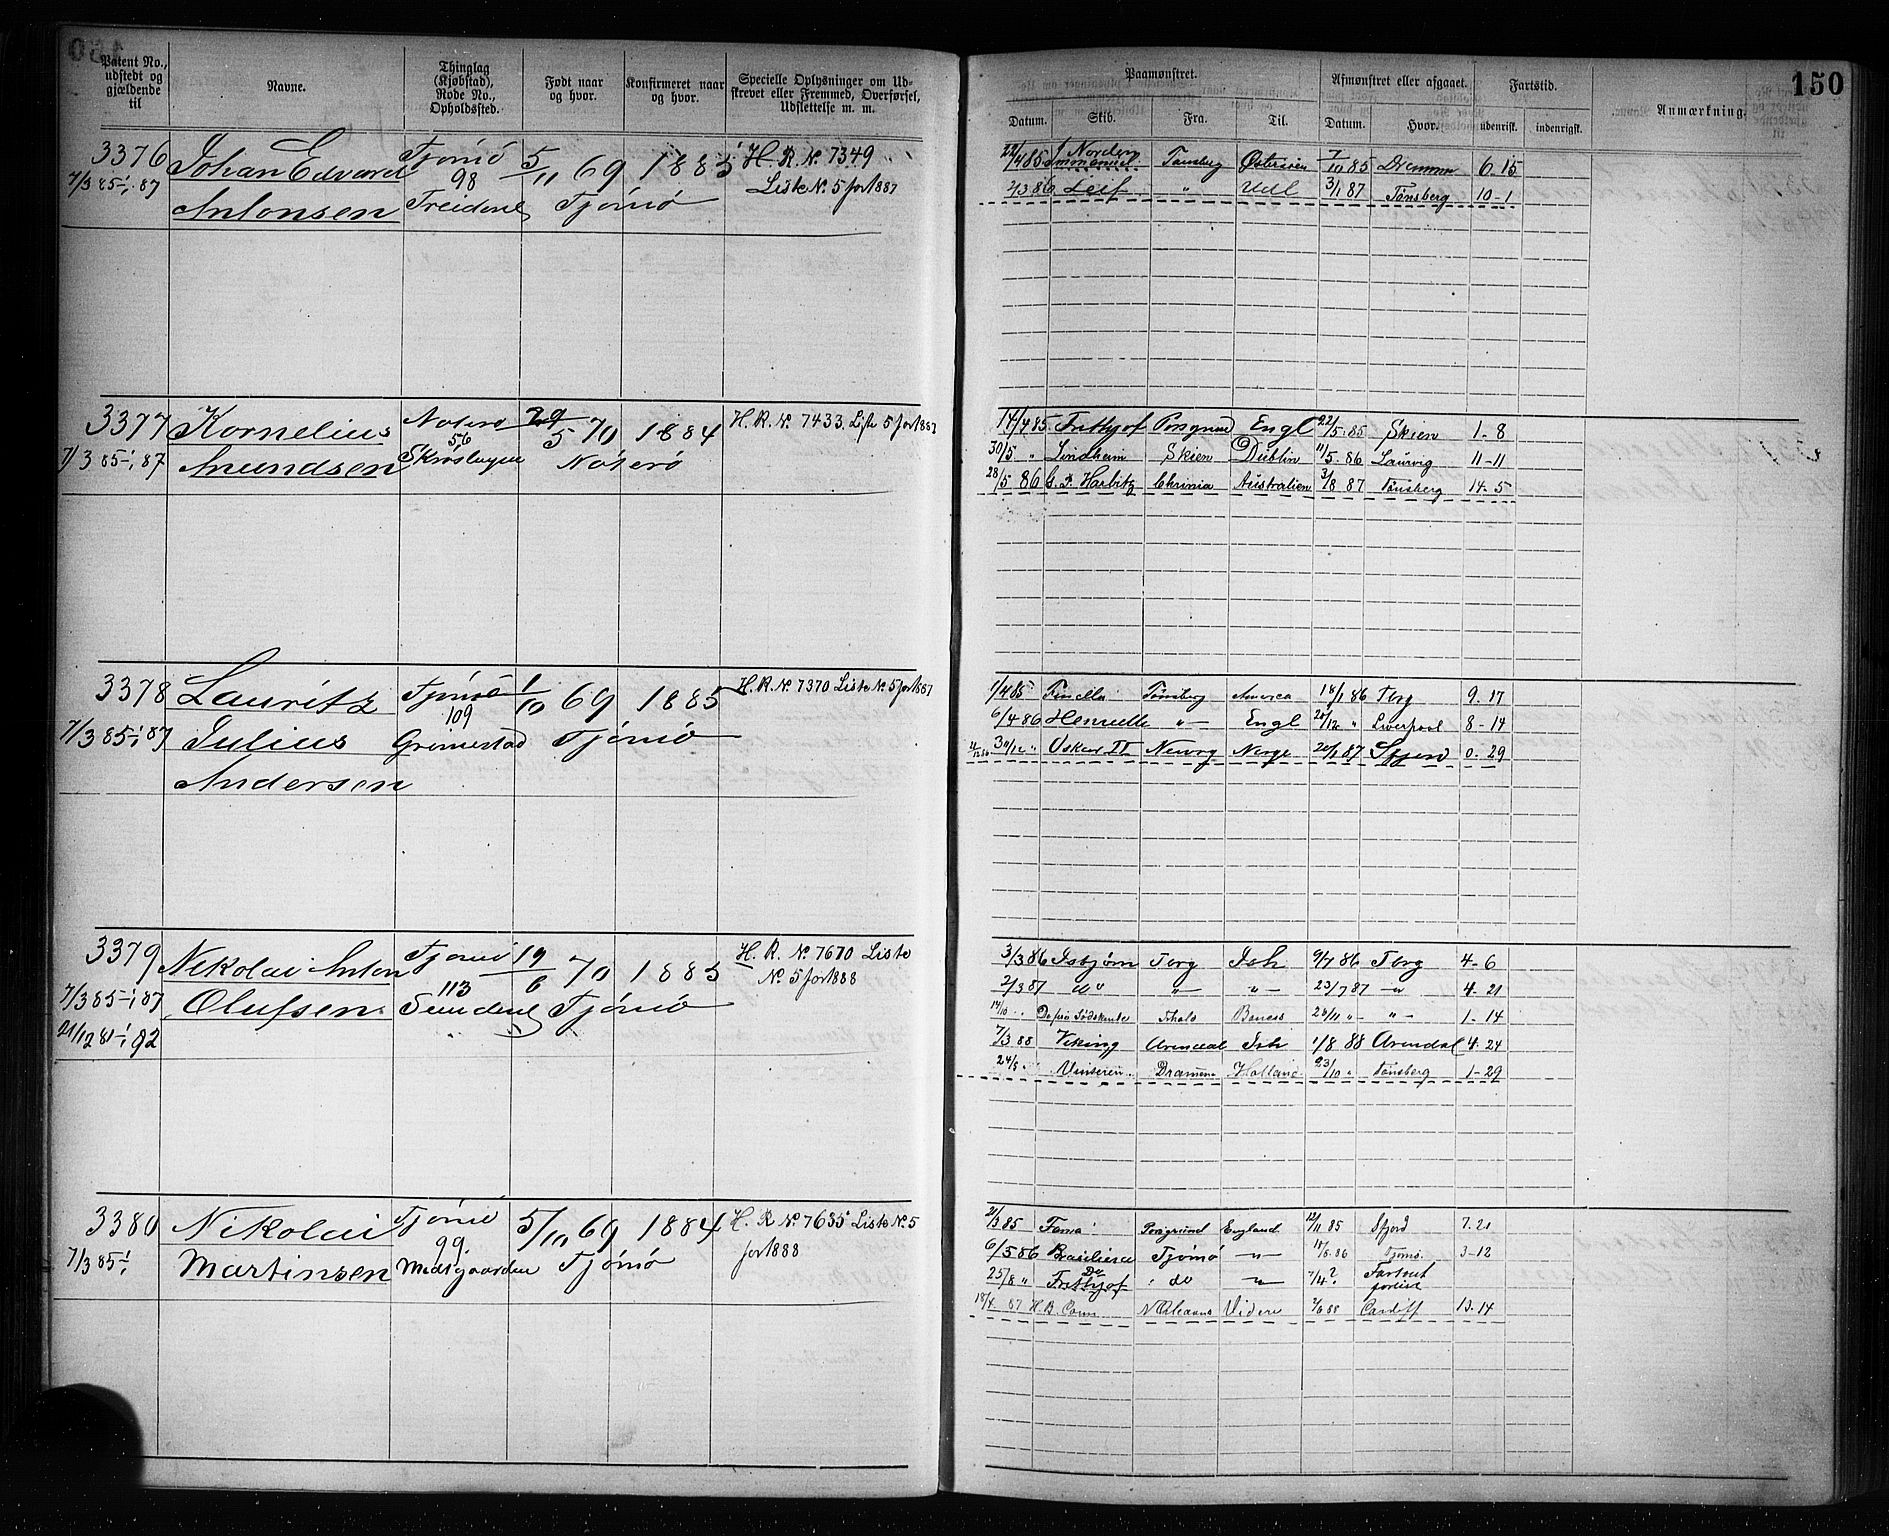 150
Patent No., udstedt og gjældende til
Navne.
Thinglag (Kjøbstad), Rode No., Opholdssted.
Født naar og hvor.
Konfirmeret naar og hvor.
Specielle Oplysninger om Udskrevet eller Fremmed, Overførsel, Udslettelse m. m.
Paamønstret.
Afmønstret eller afgaaet.
Fartstid.
Anmærkning.
Datum. Skib. Fra. Til. Datum. Hvor. udenrigsk. indenrigsk.
3376 Johan Edvard Tjømø 5/11 69 1885 H. R. No 7349
7/3 85 - 1/1 87 98 Liste No. 5 for 1887
Antonsen Tjømø
22/4 85 Norden Tønsberg 7/10 85 6. 15
2/3 86 Leif " 3/1 87 Tønsberg 10 - 1
3377 Kornelius Nøterø 29/5 70 1884 H. R. No. 7433. 5 for 1887
7/3 85 - 1/1 87 Amundsen 56 Nøterø
14/4 85 Frithjof Porsgrund Engl 22/5 85 Skien 1 - 8
30/5 " Lindheim Skien Dublin 11/5 86 Laurvig 11 - 11
28/5 86 Harbitz Chrania Australien 3/8 87 Tønsberg 14 - 5
3378 Lauritz Tjømø 1/10 69 1885 H. R. No. 7370 Liste No. 5 for 1887
7/3 85 - 1/1 87 Julius 109 Grimestad Tjømø
Andersen
1/4 85 Tønsberg America 18/1 86 9. 17
6/4 86 Henriette " Engl 20/12 " Liverpool 8 - 14
30/12 " Oskar II Norge 20/1 87 0. 29
3379 Nikolai Anton Tjømø 19/6 70 1885 H. R. No. 7670 Liste
7/3 85 - 1/1 87 113 No. 5 for 1888
Olufsen Tjømø
21/12 81 - 1/1 92
3/3 86 Isbjørn Ish 9/7 86 4 - 6
2/3 87 " " 23/7 87 " 4 - 21
14/10 " " 1 - 14
7/3 88 Viking Arendal Ish 1/8 88 Arendal 4. 24
24/8 " Holland 23/10 " Tønsberg 1 - 29
3380 Nikolai Tjømø 5/10 69 1884 H. R No 7635 Liste No. 5
7/3 85 - 1/1 Martinsen 99 Tjømø for 1888
21/3 85 Porsgrund England 12/11 85 7. 21
6/5 86 Tjømø " 3 - 12
25/8 " Frithjof do " 7/4 ?
18/4 87 Cardiff 13. 14